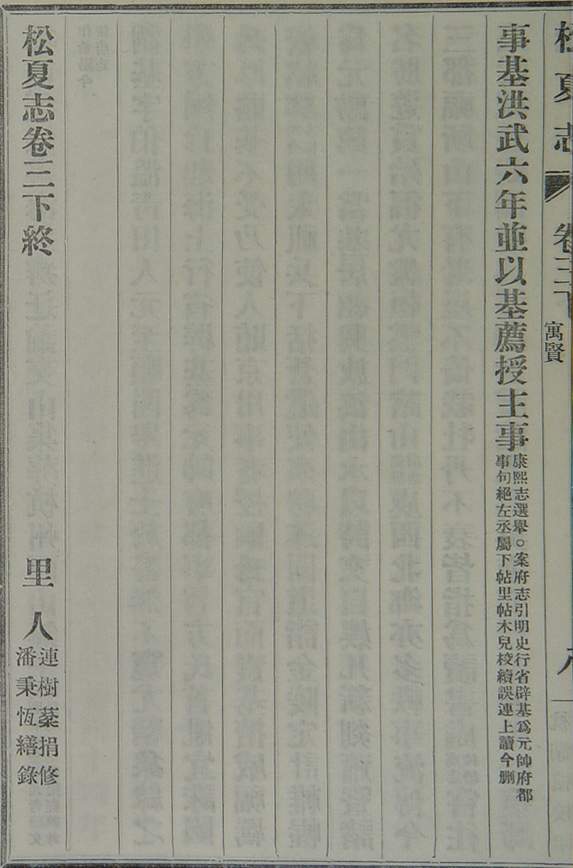 松夏志 卷三下 寓賢 八
事基洪武六年並以基薦授主事康熙志選舉○案府志引明史行省辟基爲元帥府都
事句絕左丞屬下帖里帖木兒校續誤連上讀今刪
松夏志卷三下終
里人
連樹蔂捐修
潘秉恆繕錄